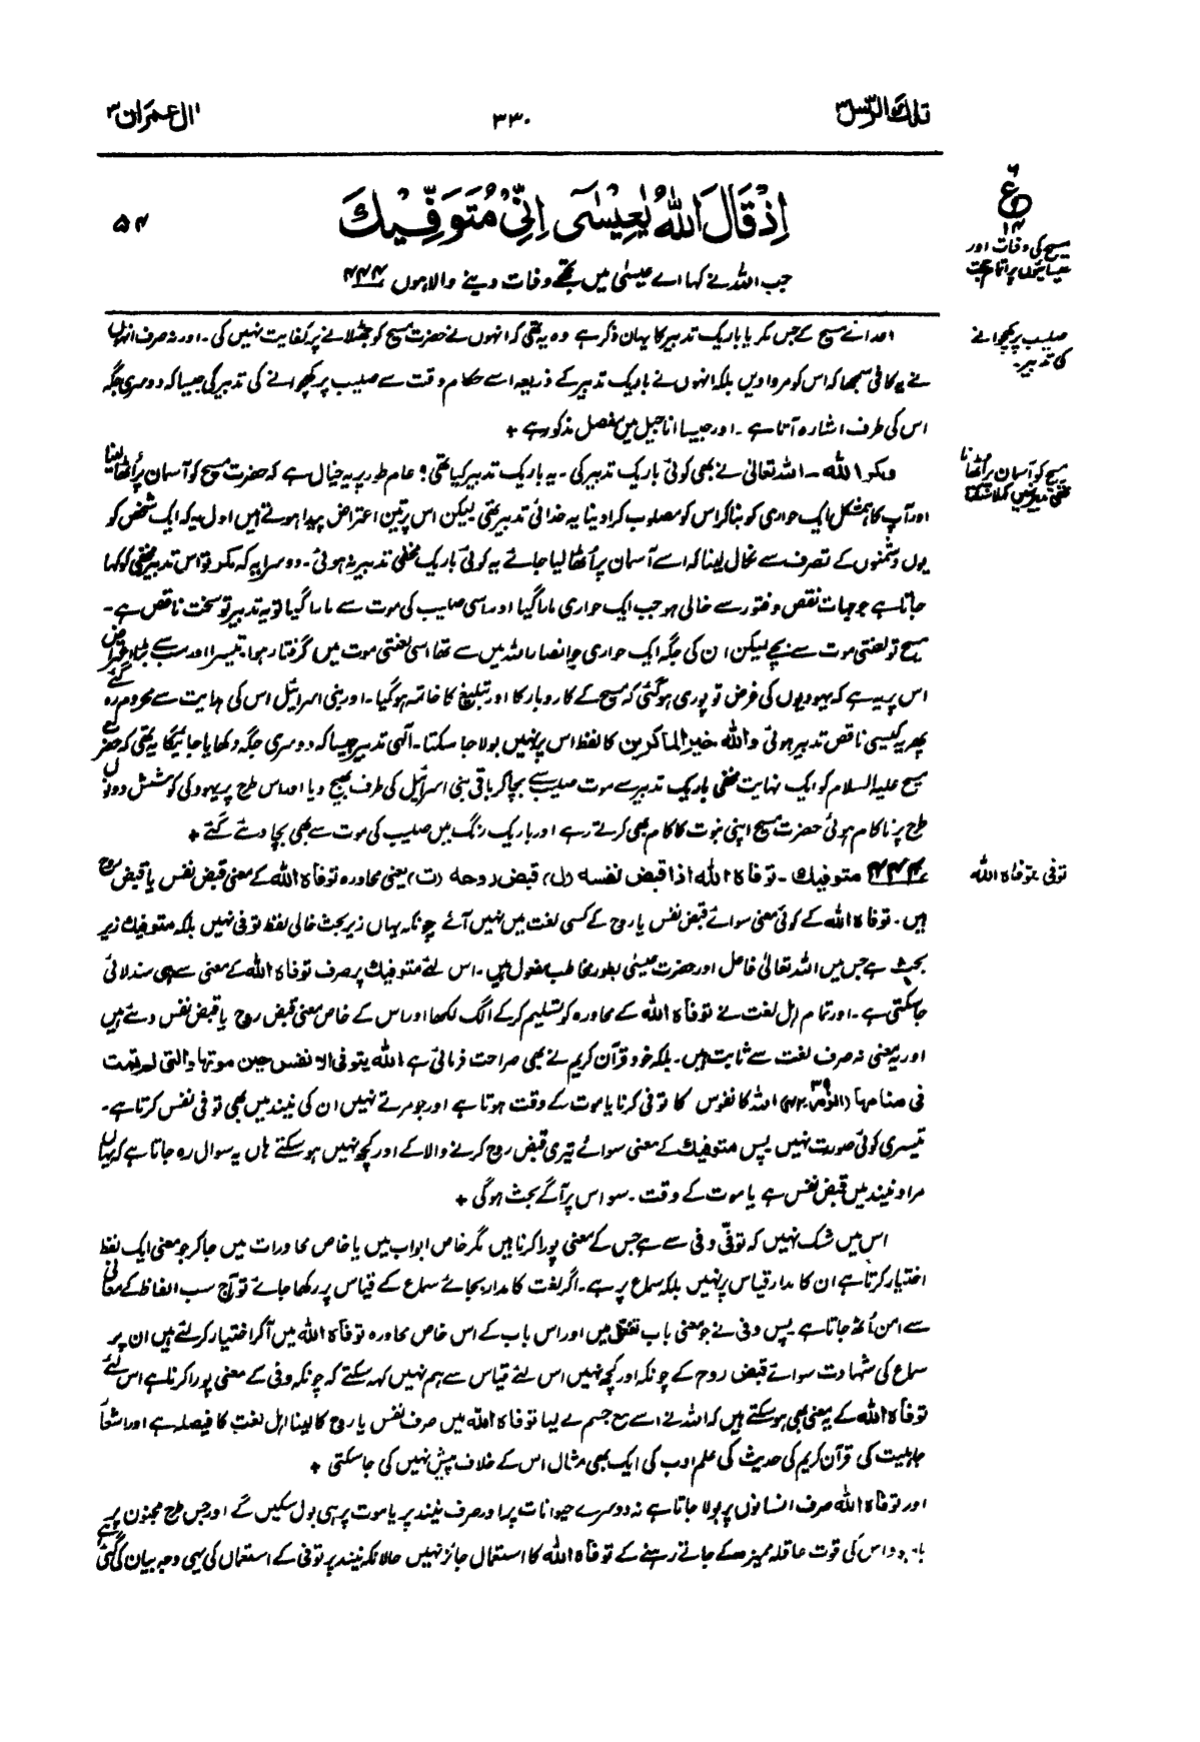 تلك الرسل ۳
۳۳۰
اٰل عمران ۳
اِذْ قَالَ اللّٰهُ يٰعِيْسٰٓى اِنِّىْ مُتَوَفِّيْكَ
۵۴
ع
۱۴
مسیح کی وفات اور
عیسائیوں پر اتمام حجت
جب اللہ نے کہا اے عیسٰی میں تجھے وفات دینے والا ہوں ۴۴۴
صلیب پر کھچوانے
کی تدبیر۔
اعدائے مسیح کے جس مکر یا باریک تدبیر کا یہاں ذکر ہے وہ یہ تھی کہ انہوں نے حضرت مسیح کو جھٹلانے پر کفایت نہیں کی۔ اور نہ صرف انہوں
نے یہ کافی سمجھا کہ اس کو مروا دیں بلکہ انہوں نے باریک تدبیر کے ذریعہ اسے حکام وقت سے صلیب پر کھچوانے کی تدبیر کی جیسا کہ دوسری جگہ
اس کی طرف اشارہ آتا ہے۔ اور جیسا اناجیل میں مفصل مذکور ہے +
مسیح کو آسمان پر اٹھانا
مخفی تدبیر نہیں کہلا سکتا
ومکر اللہ۔ اللہ تعالیٰ نے بھی کوئی باریک تدبیر کی۔ یہ باریک تدبیر کیا تھی؟ عام طور پر یہ خیال ہے کہ حضرت مسیح کو آسمان پر اُٹھا لینا
اور آپ کا ہمشکل ایک حواری کو بنا کر اس کو مصلوب کرا دینا یہ خدائی تدبیر تھی لیکن اس پر تین اعتراض پیدا ہوتے ہیں اول یہ کہ ایک شخص کو
یوں دشمنوں کے تصرف سے نکال لینا کہ اسے آسمان پر اُٹھا لیا جائے یہ کوئی باریک مخفی تدبیر نہ ہوئی۔ دوسرا یہ کہ مکر تو اس تدبیر مخفی کو کہا
جاتا ہے جو جہات نقص و فتور سے خالی ہو جب ایک حواری مارا گیا اور اسی صلیب کی موت سے مارا گیا تو یہ تدبیر تو سخت ناقص ہے۔
مسیح تو لعنتی موت سے بچے لیکن ان کی جگہ ایک حواری جو انصار اللہ میں سے تھا اسی لعنتی موت میں گرفتار ہوا۔ تیسرا اور سب سے بڑا اعتراض
اس پر یہ ہے کہ یہودیوں کی غرض تو پوری ہو گئی کہ مسیح کے کاروبار کا اور تبلیغ کا خاتمہ ہو گیا۔ اور بنی اسرائیل اس کی ہدایت سے محروم رہ گئے
پھر یہ کیسی ناقص تدبیر ہوئی واللہ خیر الماکرین کا لفظ اس پر نہیں بولا جا سکتا۔ الٰہی تدبیر جیسا کہ دوسری جگہ دکھایا جائیگا یہ تھی کہ حضرت
مسیح علیہ السلام کو ایک نہایت مخفی باریک تدبیر سے موت صلیب سے بچا کر باقی بنی اسرائیل کی طرف بھیج دیا اور اس طرح پر یہود کی کوشش دونوں
طرح پر ناکام ہوئی حضرت مسیح اپنی نبوت کا کام بھی کرتے رہے اور باریک رنگ میں صلیب کی موت سے بھی بچا دئے گئے +
توفی و توفاہ اللہ
۴۴۴ متوفیک۔ توفاہ اللہ اذا قبض نفسه (ل) قبض روحه (ت) یعنی محاورہ توفاہ اللہ کے معنی قبض نفس یا قبض روح
ہیں۔ توفاہ اللہ کے کوئی معنی سوائے قبض نفس یا روح کے کسی لغت میں نہیں آئے چونکہ یہاں زیر بحث خالی لفظ توفی نہیں بلکہ متوفیک زیر
بحث ہے جس میں اللہ تعالیٰ فاعل اور حضرت عیسیٰ بطور مخاطب مفعول ہیں۔ اس لئے متوفیک پر صرف توفاہ اللہ کے معنی سے ہی سند لائی
جا سکتی ہے۔ اور تمام اہل لغت نے توفاہ اللہ کے محاورہ کو تسلیم کر کے الگ لکھا اور اس کے خاص معنی قبض روح یا قبض نفس دئے ہیں
اور یہ معنی نہ صرف لغت سے ثابت ہیں۔ بلکہ خود قرآن کریم نے بھی صراحت فرمائی ہے اللہ یتوفی الانفس حین موتہا والتی لم تمت
فی منامہا (الزمر ۳۹: ۴۲) اللہ کا نفوس کا توفی کرنا یا موت کے وقت ہوتا ہے اور جو مرتے نہیں ان کی نیند میں بھی توفی نفس کرتا ہے۔
تیسری کوئی صورت نہیں پس متوفیک کے معنی سوائے تیری قبض روح کرنے والا کے اور کچھ نہیں ہو سکتے ہاں یہ سوال رہ جاتا ہے کہ یہاں
مراد نیند میں قبض نفس ہے یا موت کے وقت۔ سو اس پر آگے بحث ہو گی +
اس میں شک نہیں کہ توفّی وفی سے ہے جس کے معنی پورا کرنا ہیں مگر خاص ابواب میں یا خاص محاورات میں جا کر جو معنی ایک لفظ
اختیار کرتا ہے ان کا مدار قیاس پر نہیں بلکہ سماع پر ہے۔ اگر لغت کا مدار بجائے سماع کے قیاس پر رکھا جائے تو آج سب الفاظ کے معانی
سے امن اُٹھ جاتا ہے پس وفی نے جو معنی باب تفعل میں اور اس باب کے اس خاص محاورہ توفاہ اللہ میں آکر اختیار کر لئے ہیں ان پر
سماع کی شہادت سوائے قبض روح کے چونکہ اور کچھ نہیں اس لئے قیاس سے ہم نہیں کہہ سکتے کہ چونکہ وفی کے معنی پورا کرنا ہے اس لئے
توفاہ اللہ کے یہ معنی بھی ہو سکتے ہیں کہ اللہ نے اسے مع جسم لے لیا توفاہ اللہ میں صرف نفس یا روح کا لینا اہل لغت کا فیصلہ ہے اور اشعار
جاہلیت کی قرآن کریم کی حدیث کی علم ادب کی ایک بھی مثال اس کے خلاف پیش نہیں کی جا سکتی +
اور توفاہ اللہ صرف انسانوں پر بولا جاتا ہے نہ دوسرے حیوانات پر اور صرف نیند پر یا موت پر ہی بول سکیں گے اور جس طرح مجنون پر
باوجود اس کی قوت عاقلہ ممیزہ کے جاتے رہنے کے توفاہ اللہ کا استعمال جائز نہیں حالانکہ نیند پر توفی کے استعمال کی یہی وجہ بیان کی گئی